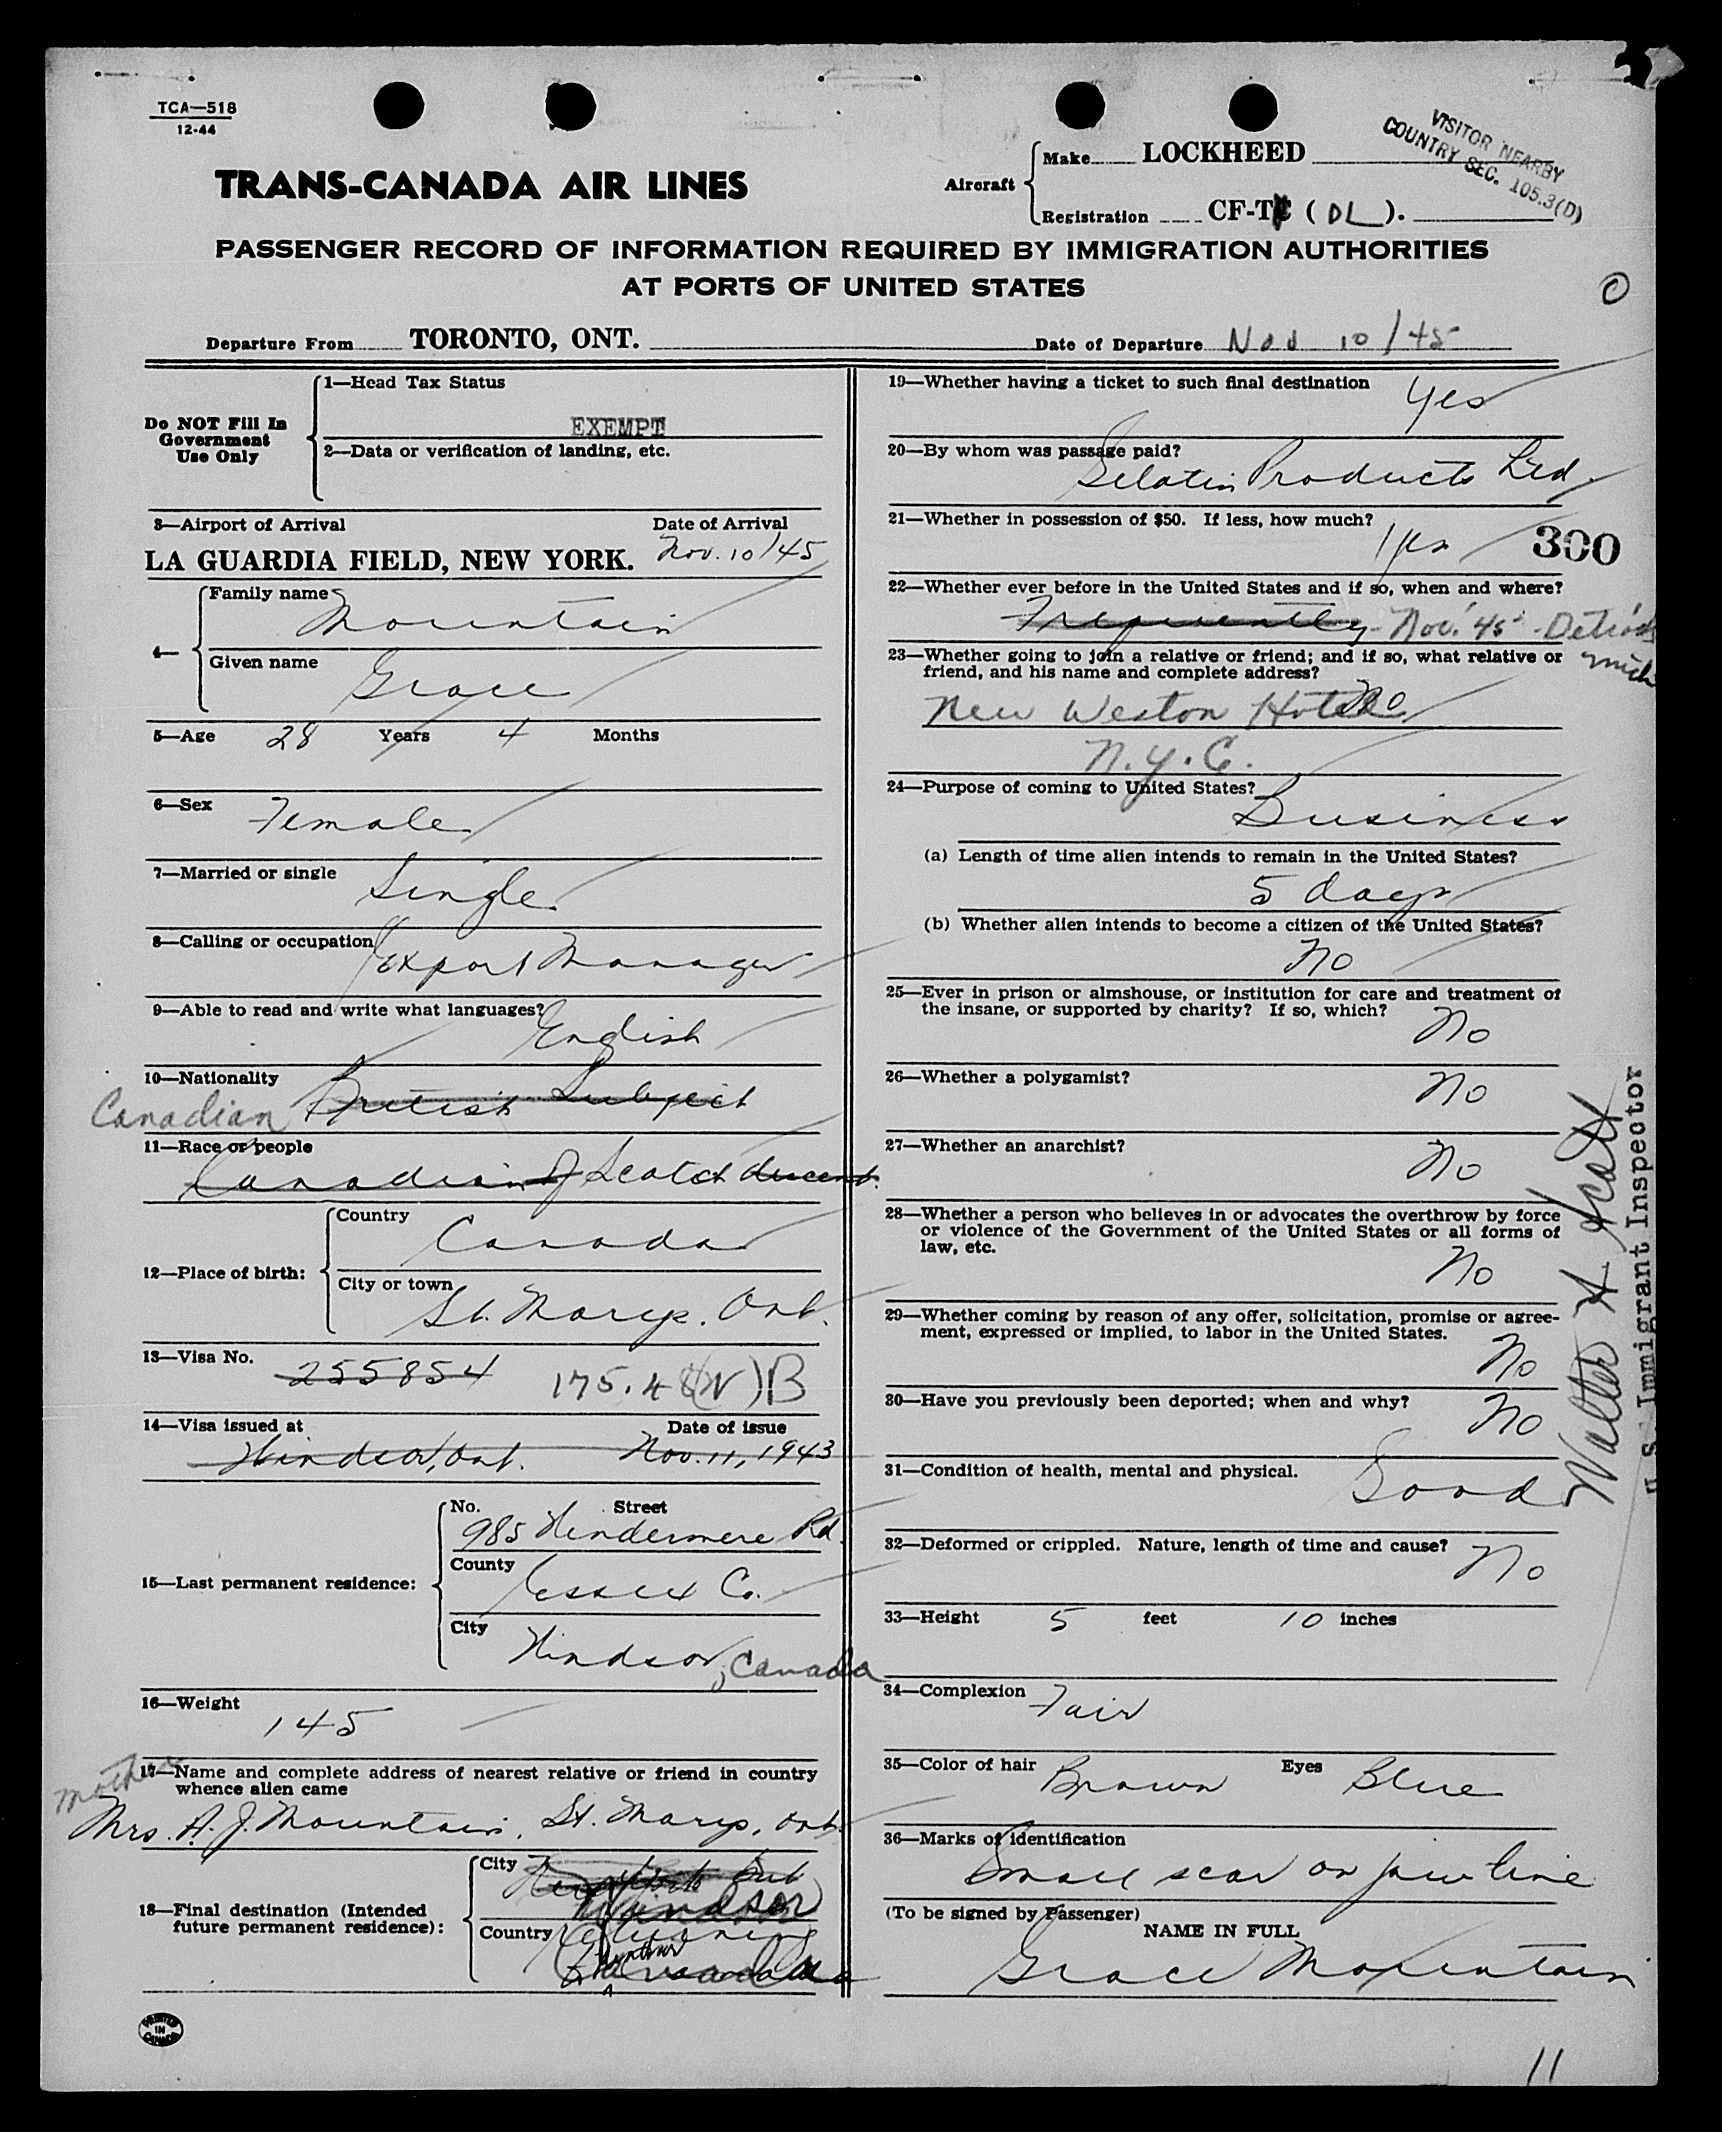 TCA—518
12-44
VISITOR NEARBY
COUNTRY SEC. 105.3(D)
TRANS-CANADA AIR LINES
Aircraft
Make LOCKHEED
Registration CF-TC ( DL ).
PASSENGER RECORD OF INFORMATION REQUIRED BY IMMIGRATION AUTHORITIES
AT PORTS OF UNITED STATES
Departure From TORONTO, ONT. Date of Departure Nov 10/45
Do NOT Fill In
Government
Use Only
1—Head Tax Status
EXEMPT
2—Data or verification of landing, etc.
3—Airport of Arrival Date of Arrival
LA GUARDIA FIELD, NEW YORK. Nov. 10/45
4—
Family name
Mountain
Given name
Grace
5—Age 28 Years 4 Months
6—Sex Female
7—Married or single Single
8—Calling or occupation Export Manager
9—Able to read and write what languages? English
10—Nationality
Canadian British Subject
11—Race or people
Canadian of Scotch descent
12—Place of birth:
Country
Canada
City or town
St. Marys. Ont.
13—Visa No. 255854 175.4 (N)B
14—Visa issued at Date of issue
Windsor, Ont. Nov. 11, 1943
15—Last permanent residence:
No. Street
985 Windermere Rd.
County
Essex Co.
City
Windsor, Canada
16—Weight 145
mother
17—Name and complete address of nearest relative or friend in country
whence alien came
Mrs. A. J. Mountain, St. Marys, Ont.
18—Final destination (Intended
future permanent residence):
City
Windsor
Country
Canada
PRINTED
IN
CANADA
19—Whether having a ticket to such final destination Yes
20—By whom was passage paid?
Gelatin Products Ltd.
21—Whether in possession of $50. If less, how much? Yes
300
22—Whether ever before in the United States and if so, when and where?
Frequently - Nov. '45 - Detroit
Mich
23—Whether going to join a relative or friend; and if so, what relative or
friend, and his name and complete address?
No
New Weston Hotel
N.Y.C.
24—Purpose of coming to United States?
Business
(a) Length of time alien intends to remain in the United States?
5 days
(b) Whether alien intends to become a citizen of the United States?
No
25—Ever in prison or almshouse, or institution for care and treatment of
the insane, or supported by charity? If so, which? No
26—Whether a polygamist? No
27—Whether an anarchist? No
28—Whether a person who believes in or advocates the overthrow by force
or violence of the Government of the United States or all forms of
law, etc. No
29—Whether coming by reason of any offer, solicitation, promise or agree-
ment, expressed or implied, to labor in the United States. No
30—Have you previously been deported; when and why? No
31—Condition of health, mental and physical. Good
32—Deformed or crippled. Nature, length of time and cause? No
33—Height 5 feet 10 inches
34—Complexion Fair
35—Color of hair Brown Eyes Blue
36—Marks of identification
Small scar on jaw line
(To be signed by Passenger)
NAME IN FULL
Grace Mountain
Walter A
U S Immigrant Inspector
11